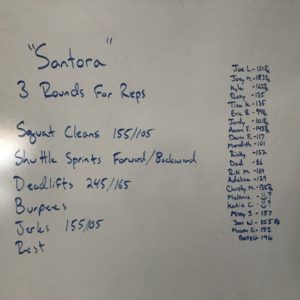 "Santora"
3 Rounds For Reps
Squat Cleans 155/105
Shuttle Sprints Forward/Backward
Deadlifts 245/165
Burpees
Jerks 155/105
Rest
Joe L -
Joey M -
Kyle -
- 135
Tina K - 135
Eric B -
Jordy -
Aaron F -
Darin F - 117
Meredith - 101
Ricky - 152
Dad - 86
Rik M - 164
Adelina - 129
Christy M -
Melanie - ?
Katie C - ?
Missy J - 157
Jon W -
Mason G -
- 146